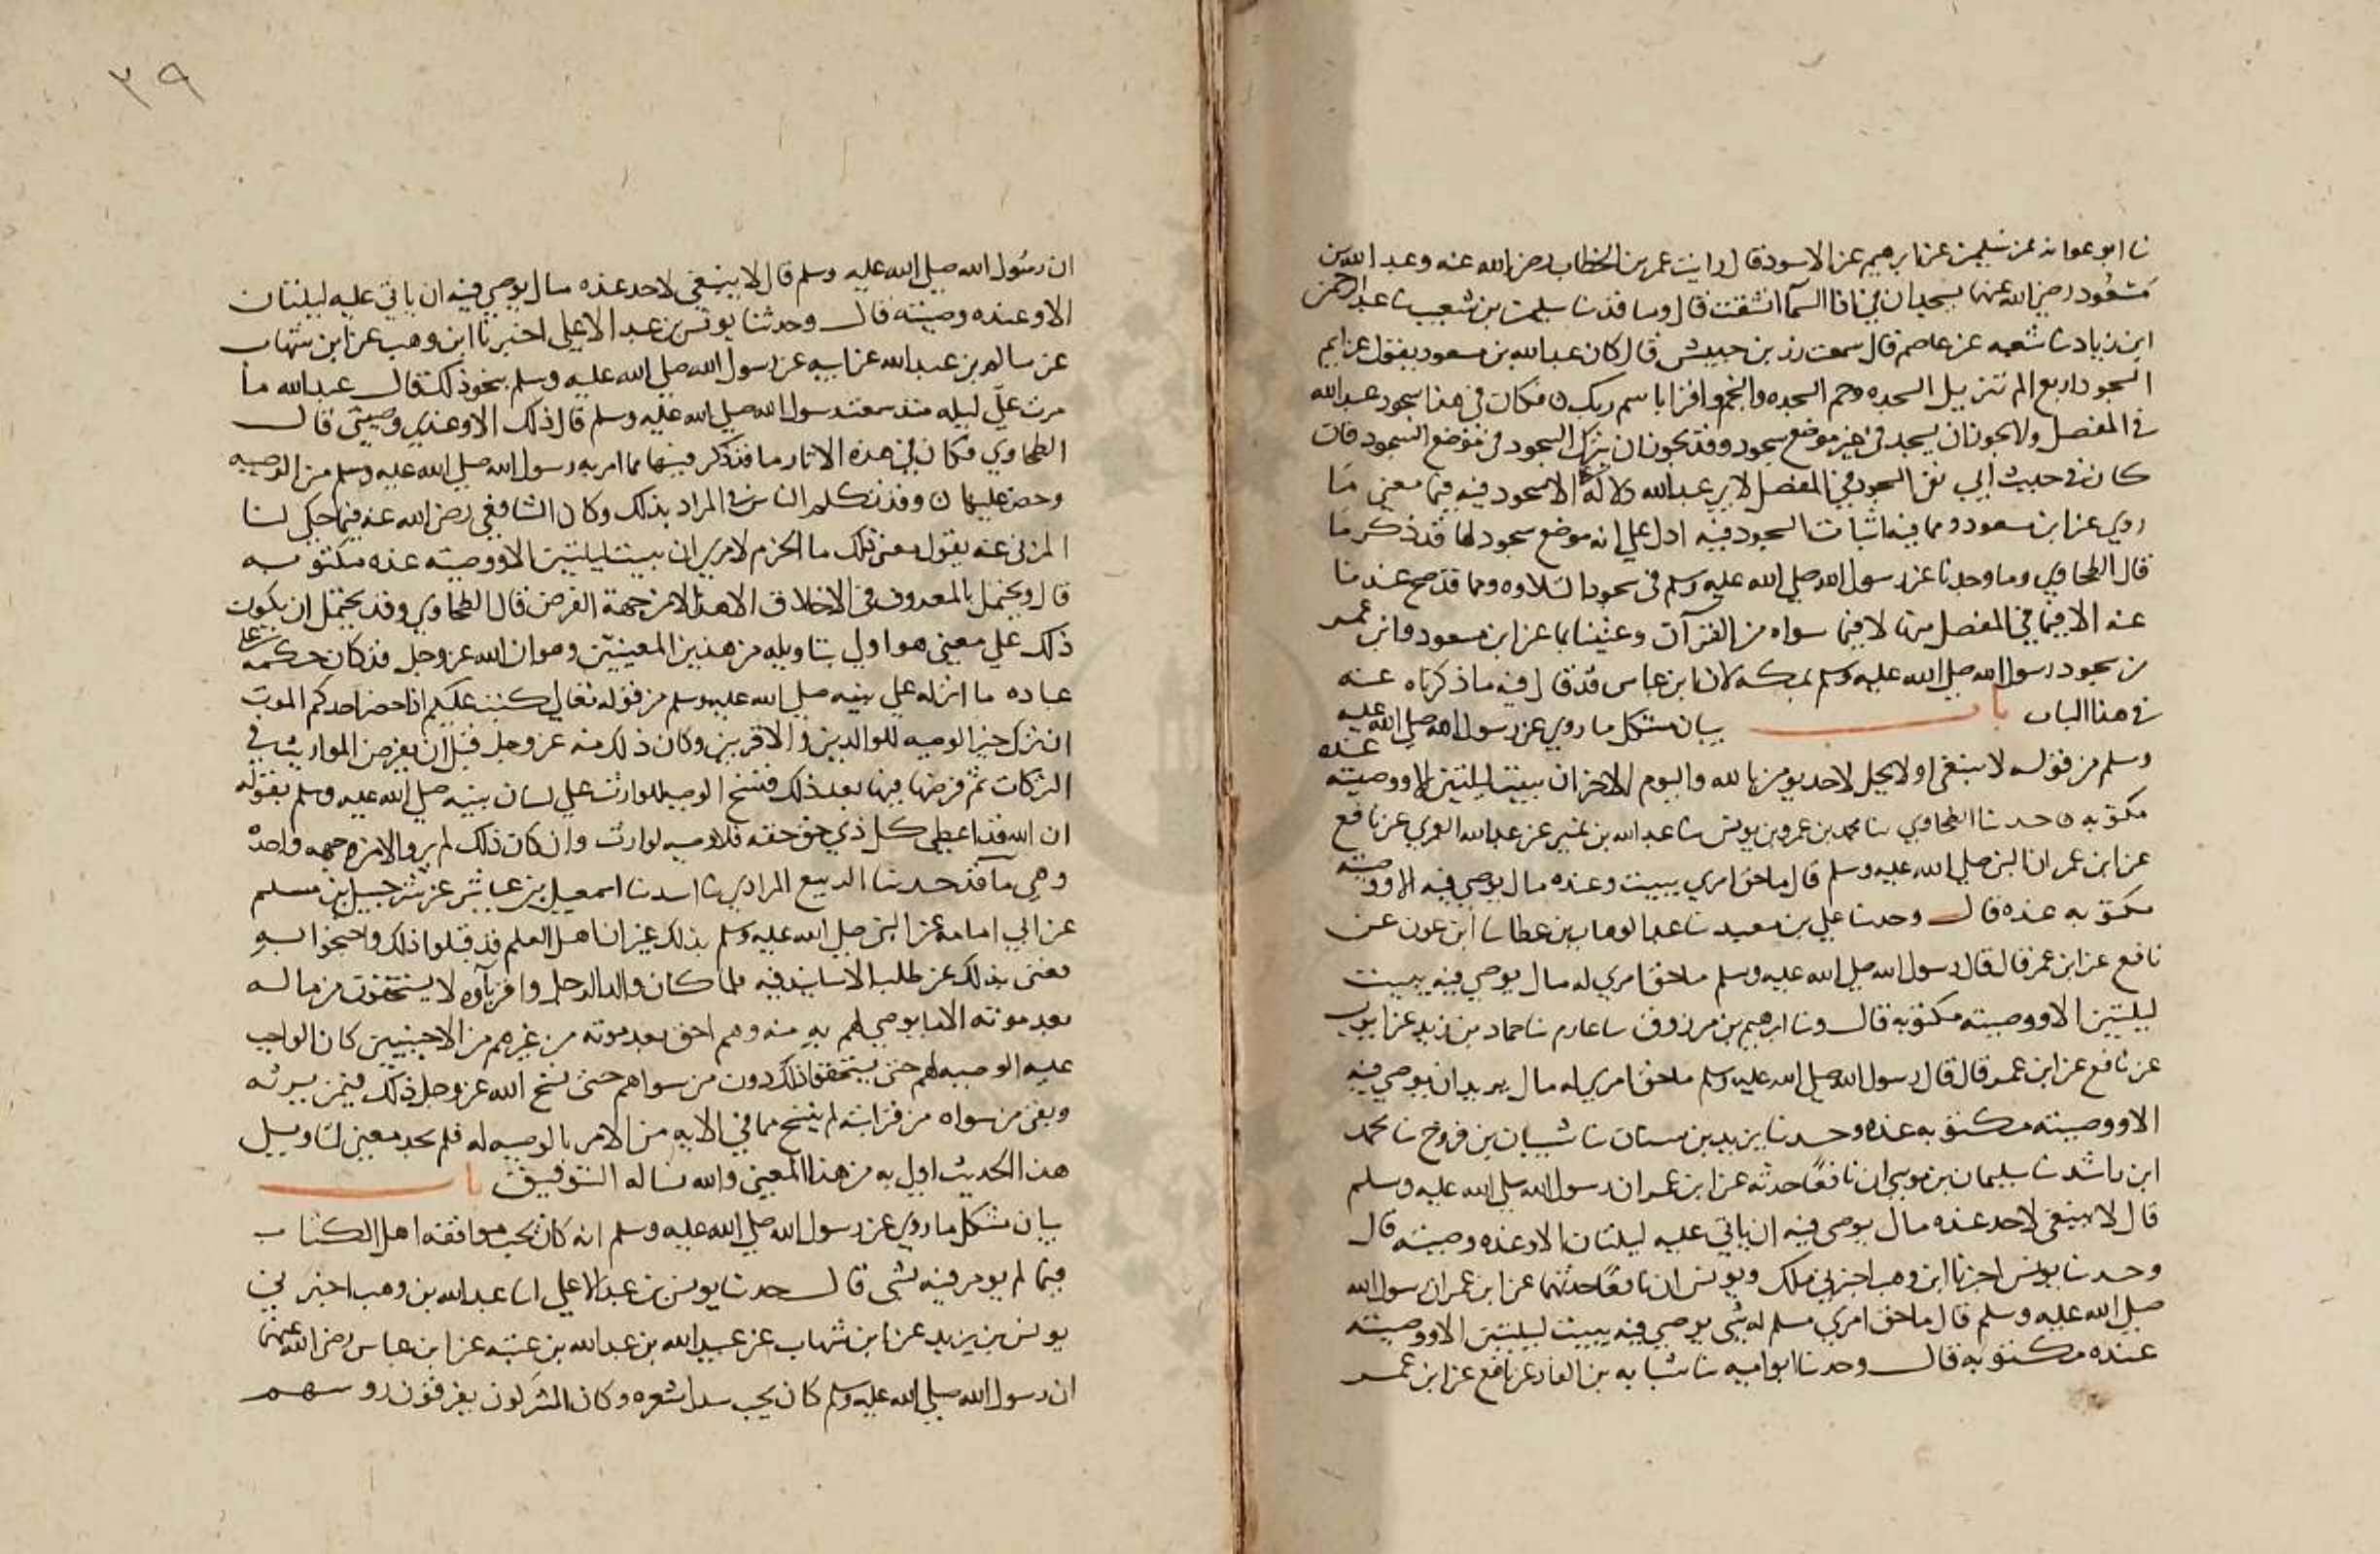 نا ابو عوانه عن سليمن عن ابرهيم عن الاسود قال رايت عمر بن الخطاب رضي الله عنه وعبد الله بن
مسعود رضي الله عنهما يسجدان في اذا السما انشقت قال وما قد نا سليمن بن شعيب نا عبد الرحمن
ابن زياد نا شعبه عن عاصم قال سمعت زر بن حبيش قال كان عبد الله بن مسعود يقول عزايم
السجود اربع الم تنزيل السجده وحم السجده والنجم واقرا باسم ربك ٥ فكان في هذا سجود عبد الله
في المفصل ولا يجوز ان يسجد في غير موضع سجود وقد يجوز ان يترك السجود في موضع السجود فان
كان في حديث ابي نفي السجود في المفصل لابي عبد الله دلالة الا سجود فيه فيما معنى ما
روي عن ابن مسعود ومما فيه اثبات السجود فيه ادل علي انه موضع سجود لما قد ذكر ما
قال الطحاوي وما وجدنا عن رسول الله صلي الله عليه وسلم في سجود التلاوه ومما قد صح عندنا
عنه الا فيما في المفصل منها لا فيما سواه من القرآن وعنينا بما عن ابن مسعود وابن عمر
من سجود رسول الله صلي الله عليه وسلم بمكه لان ابن عباس قد قال فيه ما ذكرناه عنه
في هذا الباب باب بيان مشكل ما روي عن رسول الله صلي الله عليه
وسلم من قوله لا ينبغي او لا يحل لاحد يومن بالله واليوم الاخر ان يبيت ليلتين الا ووصيته عنده
مكتوبه ٥ حدثنا الطحاوي نا محمد بن عمرو بن يونس نا عبد الله بن نمير عن عبد الله العمري عن نافع
عن ابن عمر ان النبي صلي الله عليه وسلم قال ما حق امري يبيت وعنده مال يوصي فيه الا ووصيته
مكتوبه عنده قال وحدثنا علي بن معبد نا عبد الوهاب بن عطا نا ابن عون عن
نافع عن ابن عمر قال قال رسول الله صلي الله عليه وسلم ما حق امري له مال يوصي فيه يبيت
ليلتين الا ووصيته مكتوبه قال ونا ابرهيم بن مرزوق نا عارم نا حماد بن زيد عن ايوب
عن نافع عن ابن عمر قال قال رسول الله صلي الله عليه وسلم ما حق امري له مال يريد ان يوصي فيه
الا ووصيته مكتوبه عنده وحدثنا يزيد بن سنان نا شيبان بن فروخ نا محمد
ابن راشد نا سليمان بن موسي ان نافعًا حدثه عن ابن عمر ان رسول الله صلي الله عليه وسلم
قال لا ينبغي لاحد عنده مال يوصي فيه ان ياتي عليه ليلتان الا وعنده وصيته قال
وحدثنا يونس اخبرنا ابن وهب اخبرني ملك ويونس ان نافعًا حدثهما عن ابن عمر ان رسول الله
صلي الله عليه وسلم قال ما حق امري مسلم له شي يوصي فيه يبيت ليلتين الا ووصيته
عنده مكتوبه قال وحدثنا ابو اميه نا شبابه بن الغاز عن نافع عن ابن عمر
٣٩
ان رسول الله صلي الله عليه وسلم قال لا ينبغي لاحد عنده مال يوصي فيه ان ياتي عليه ليلتان
الا وعنده وصيته قال وحدثنا يونس بن عبد الاعلي اخبرنا ابن وهب عن ابن شهاب
عن سالم بن عبد الله عن ابيه عن رسول الله صلي الله عليه وسلم بنحو ذلك قال عبد الله ما
مرت علي ليله منذ سمعت رسول الله صلي الله عليه وسلم قال ذلك الا وعندي وصيتي قال
الطحاوي فكان في هذه الاثار ما قد ذكر فيها مما امر به رسول الله صلي الله عليه وسلم من الوصيه
وحض عليها ٥ وقد تكلم الناس في المراد بذلك وكان الشافعي رضي الله عنه فيما حكي لنا
المزني عنه يقول معنى ذلك ما الحزم لامري ان يبيت ليلتين الا ووصيته عنده مكتوبه
قال ويحتمل بالمعروف في الاخلاق الا هذا لا من جهة الفرض قال الطحاوي وقد يحتمل ان يكون
ذلك علي معنى هو اولي بتاويله من هذين المعنيين وهو ان الله عز وجل قد كان حكمه علي
عباده ما انزله علي نبيه صلي الله عليه وسلم من قوله تعالي كتب عليكم اذا حضر احدكم الموت
ان ترك خيرا الوصيه للوالدين والاقربين وكان ذلك منه عز وجل قبل ان يفرض المواريث في
التركات ثم فرضها فيها بعد ذلك فنسخ الوصيه للوارث علي لسان نبيه صلي الله عليه وسلم بقوله
ان الله قد اعطي كل ذي حق حقه فلا وصيه لوارث وان كان ذلك لم يرو الا من جهه واحده
وهي ما قد حدثنا الربيع المرادي نا اسد نا اسمعيل بن عياش عن شرحبيل بن مسلم
عن ابي امامه عن النبي صلي الله عليه وسلم بذلك غير ان اهل العلم قد قبلوا ذلك واحتجوا به
فغني بذلك عن طلب الاسانيد فيه فلما كان والد الرجل واقرباوه لا يستحقون من ماله
بعد موته الا ما يوصي لهم به منه وهم احق بعد موته من غيرهم من الاجنبيين كان الواجب
عليه الوصيه لهم حتى يستحقوا ذلك دون من سواهم حتى نسخ الله عز وجل ذلك فيمن يرثه
وبقي من سواه من قرابته لم ينسخ مما في الايه من الامر بالوصيه له فلم نجد معنى لتاويل
هذا الحديث اولي به من هذا المعنى والله نساله التوفيق باب
بيان مشكل ما روي عن رسول الله صلي الله عليه وسلم انه كان يحب موافقه اهل الكتاب
فيما لم يومر فيه بشي قال حدثنا يونس بن عبد الاعلي انا عبد الله بن وهب اخبرني
يونس بن يزيد عن ابن شهاب عن عبيد الله بن عبد الله بن عتبه عن ابن عباس رضي الله عنهما
ان رسول الله صلي الله عليه وسلم كان يحب سدل شعره وكان المشركون يفرقون روسهم